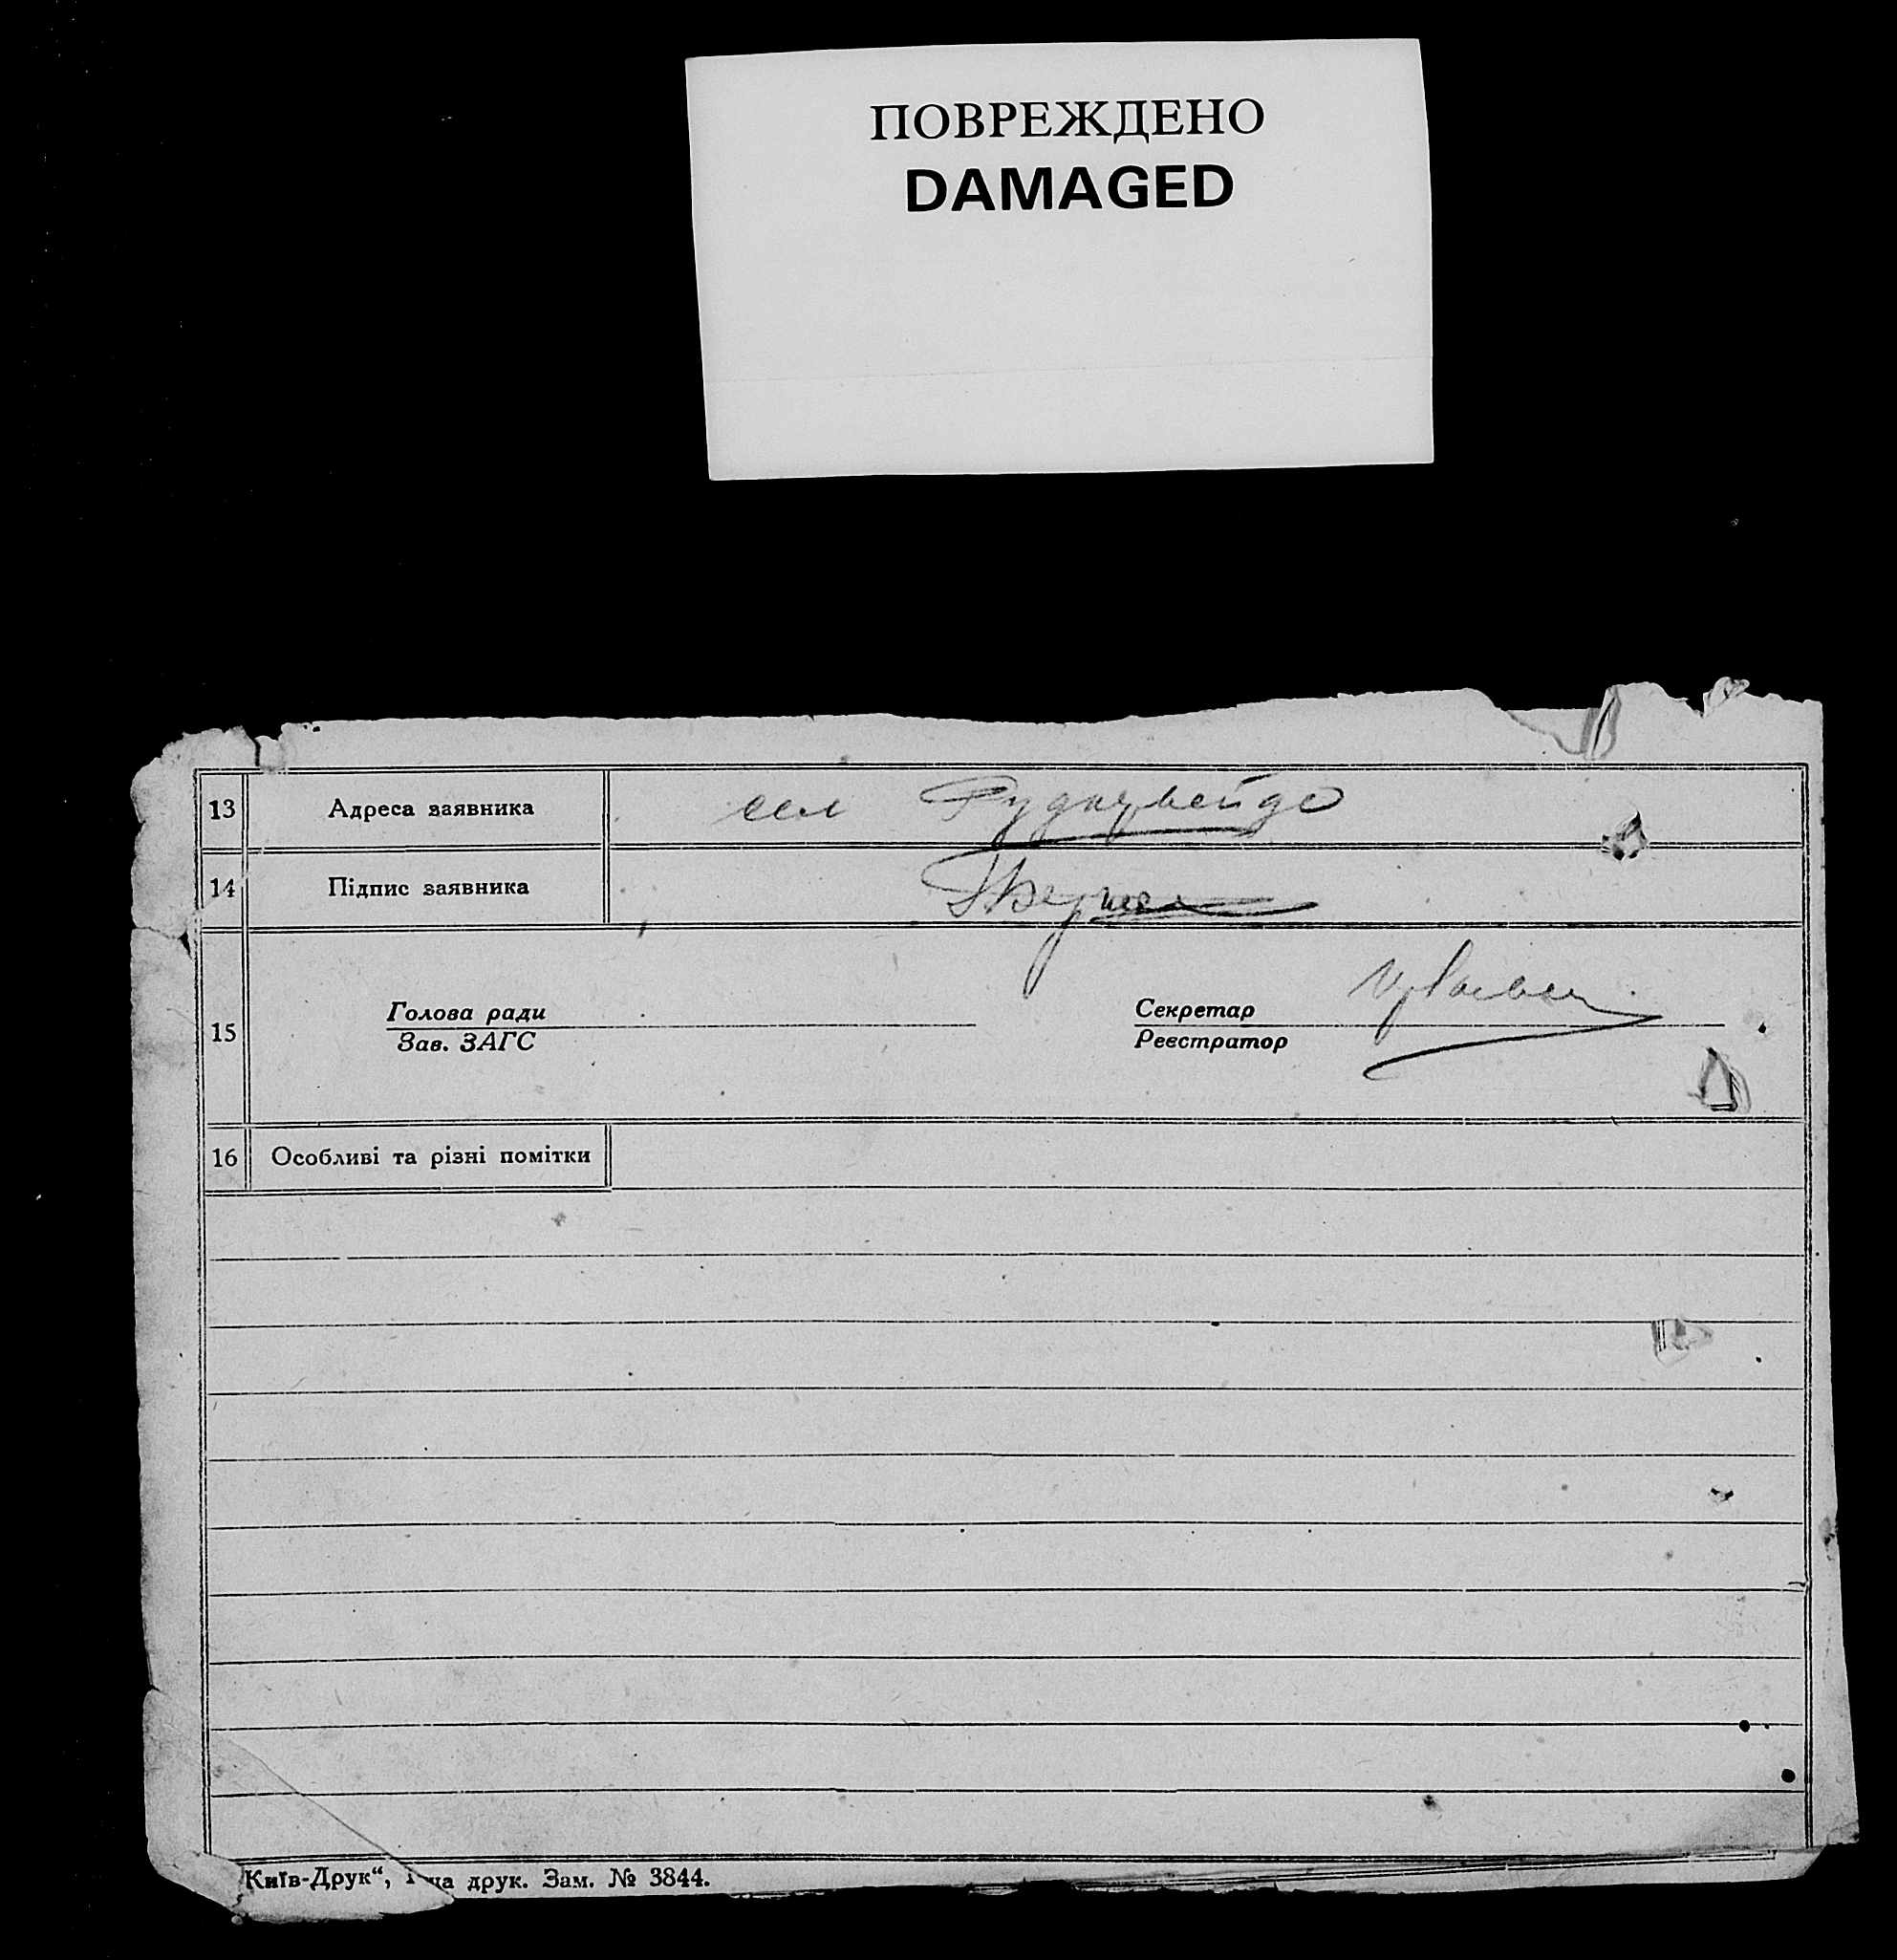 ПОВРЕЖДЕНО
DAMAGED
13 Адреса заявника сел
14 Підпис заявника
Голова ради Секретар
15
Зав. ЗАГС Реєстратор
16 Особливі та різні помітки
Київ-Друк“, друк. Зам. № 3844.